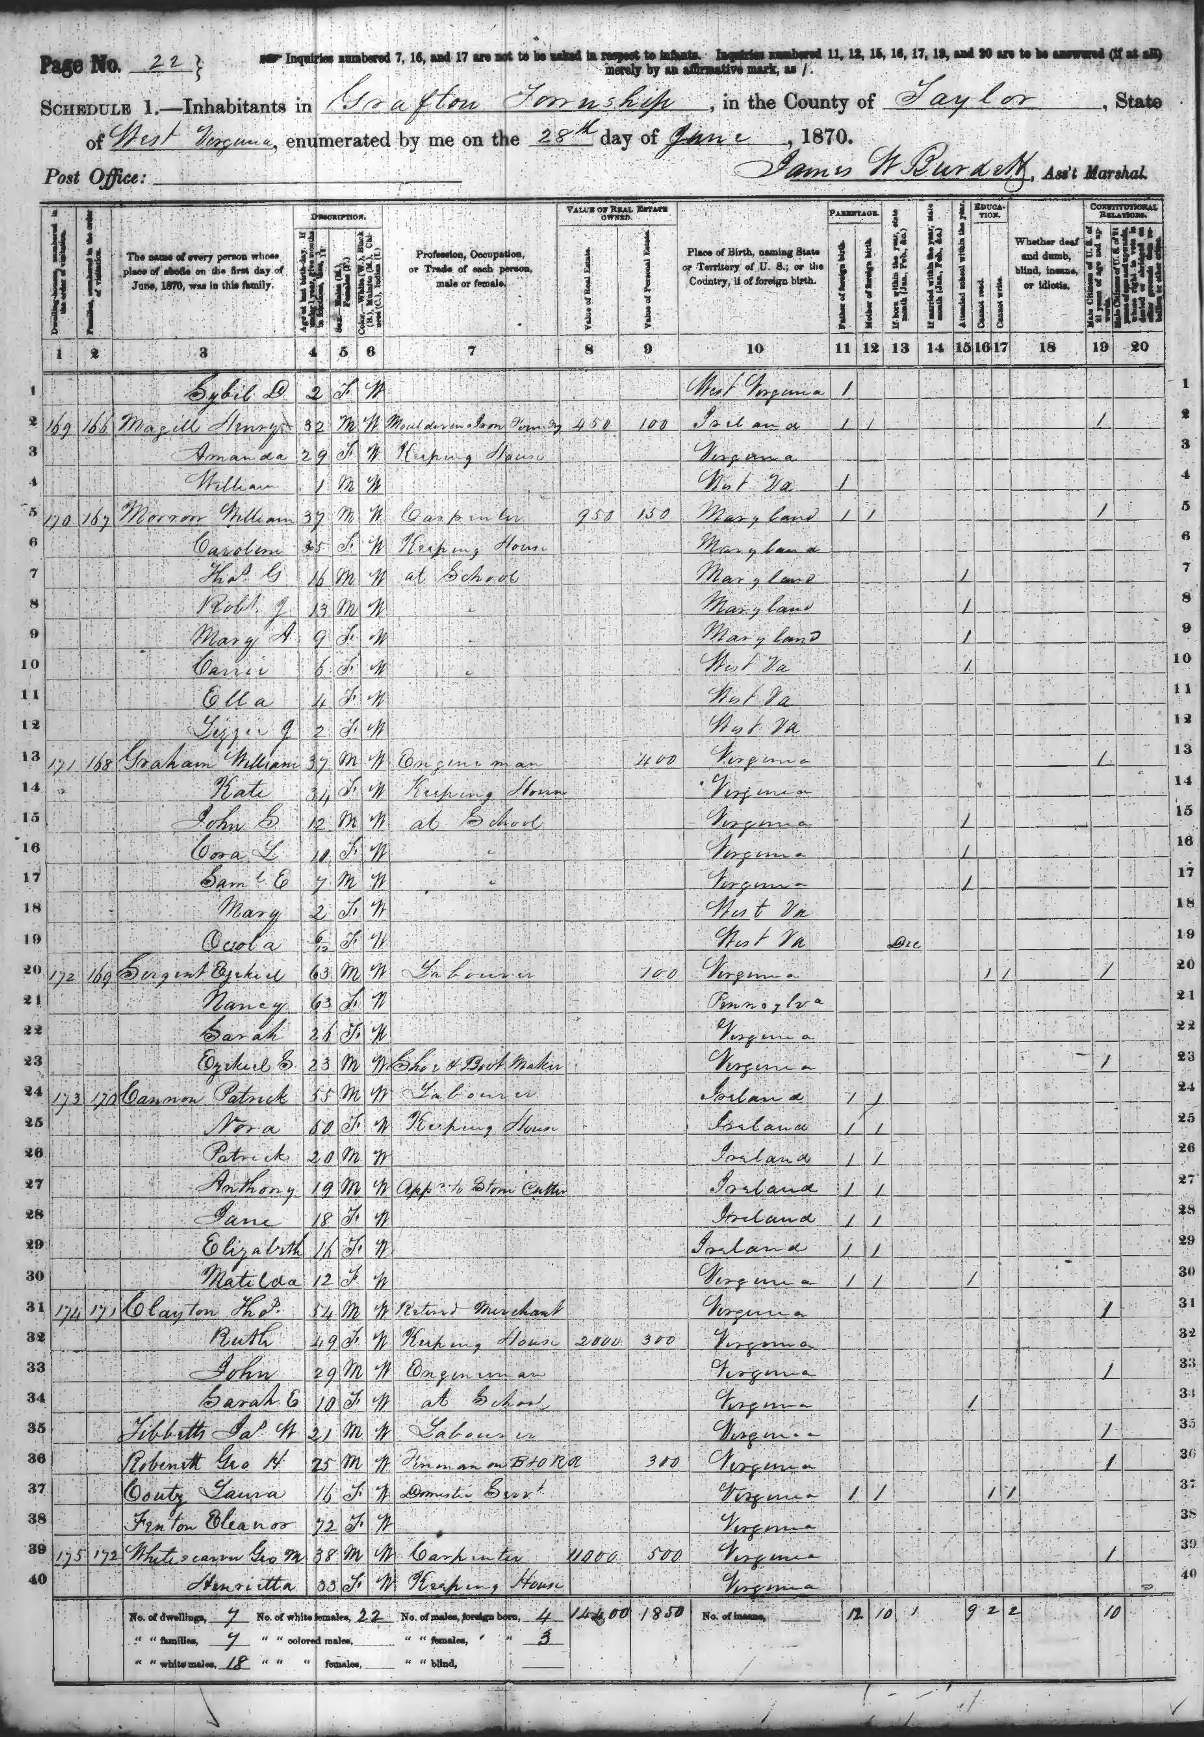 Page No. 22
Inquiries numbered 7, 16, and 17 are not to be asked in respect to infants. Inquiries numbered 11, 12, 15, 16, 17, 19, and 20 are to be answered (if at all)
merely by an affirmative mark, as /.
SCHEDULE 1.—Inhabitants in Grafton Township, in the County of Taylor, State
of West Virginia, enumerated by me on the 28th day of June, 1870.
Post Office: James W Burdett, Ass't Marshal.
DESCRIPTION. VALUE OF REAL ESTATE OWNED. PARENTAGE. EDUCATION. CONSTITUTIONAL RELATIONS.
The name of every person whose place of abode on the first day of June, 1870, was in this family.
Profession, Occupation, or Trade of each person, male or female.
Value of Real Estate. Value of Personal Estate.
Place of Birth, naming State or Territory of U. S.; or the Country, if of foreign birth.
Father of foreign birth. Mother of foreign birth.
Attended school within the year. Cannot read. Cannot write.
Whether deaf and dumb, blind, insane, or idiotic.
1 2 3 4 5 6 7 8 9 10 11 12 13 14 15 16 17 18 19 20
1 Sybil D 2 F W West Virginia / 1
2 169 166 Magill Henry 32 M W Moulder in Iron Foundry 450 100 Ireland / / / 2
3 Amanda 29 F W Keeping House Virginia 3
4 William 1 M W West Va / 4
5 170 167 Morrow William 37 M W Carpenter 950 150 Maryland / / / 5
6 Caroline 35 F W Keeping House Maryland 6
7 Thos G 16 M W at School Maryland / 7
8 Robt J 13 M W " Maryland / 8
9 Mary A 9 F W Maryland / 9
10 Carrie 6 F W " West Va / 10
11 Ella 4 F W West Va 11
12 Lizzie J 2 F W West Va 12
13 171 168 Graham William 37 M W Engineman 400 Virginia / 13
14 Kate 34 F W Keeping House Virginia 14
15 John S 12 M W at School Virginia / 15
16 Cora L 10 F W " Virginia / 16
17 Saml E 7 M W " Virginia / 17
18 Mary 2 F W West Va 18
19 6/12 F W West Va Dec 19
20 172 169 Sergent Ezekiel 63 M W Labourer 100 Virginia / / / 20
21 Nancy 63 F W Pennsylva 21
22 Sarah 26 F W Virginia 22
23 Ezekiel S 23 M W Shoe & Boot Maker Virginia / 23
24 173 170 Cannon Patrick 55 M W Labourer Ireland / / 24
25 Nora 50 F W Keeping House Ireland / / 25
26 Patrick 20 M W Ireland / / 26
27 Anthony 19 M W App to Stone Cutter Ireland / / 27
28 Jane 18 F W Ireland / / 28
29 Elizabeth 16 F W Ireland / / 29
30 Matilda 12 F W Virginia / / / 30
31 174 171 Clayton Thos. 54 M W Retired Merchant Virginia / 31
32 Ruth 49 F W Keeping House 2000 300 Virginia 32
33 John 29 M W Engineman Virginia / 33
34 Sarah E 10 F W at School Virginia / 34
35 Tibbetts Jas W 21 M W Labourer Virginia / 35
36 Robinett Geo H 25 M W Fireman on B&O RR 300 Virginia / 36
37 Couty Laura 16 F W Domestic Servt Virginia / / / / 37
38 Fenton Eleanor 72 F W Virginia 38
39 175 172 Whitescarver Geo M 38 M W Carpenter 11000 500 Virginia / 39
40 Henrietta 33 F W Keeping House Virginia 40
No. of dwellings, 7 No. of white females, 22 No. of males, foreign born, 4 14400 1850 No. of insane, 12 10 1 9 2 2 10
" " families, 7 " " colored males, " " females, " " 3
" " white males, 18 " " " females, " " blind,